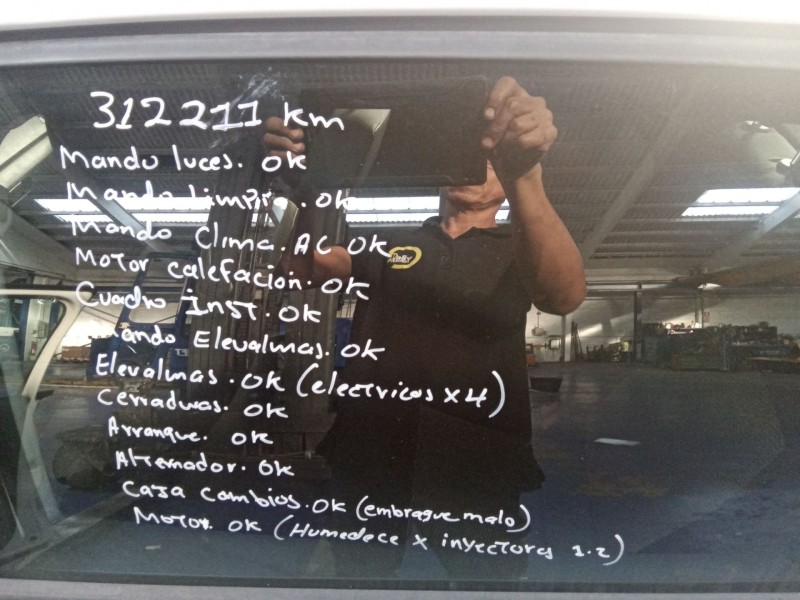 312211 km
Mando luces. ok
Mando Limpia. ok
Mando Clima. AC ok
Motor calefacion. ok
Cuadro Inst. ok
Mando Elevalunas. ok
Elevalunas. ok (electricos x4)
Cerraduras. ok
Arranque. ok
Alternador. ok
Caja cambios. ok (embrague malo)
Motor. ok (Humedece x inyectores 1.2)